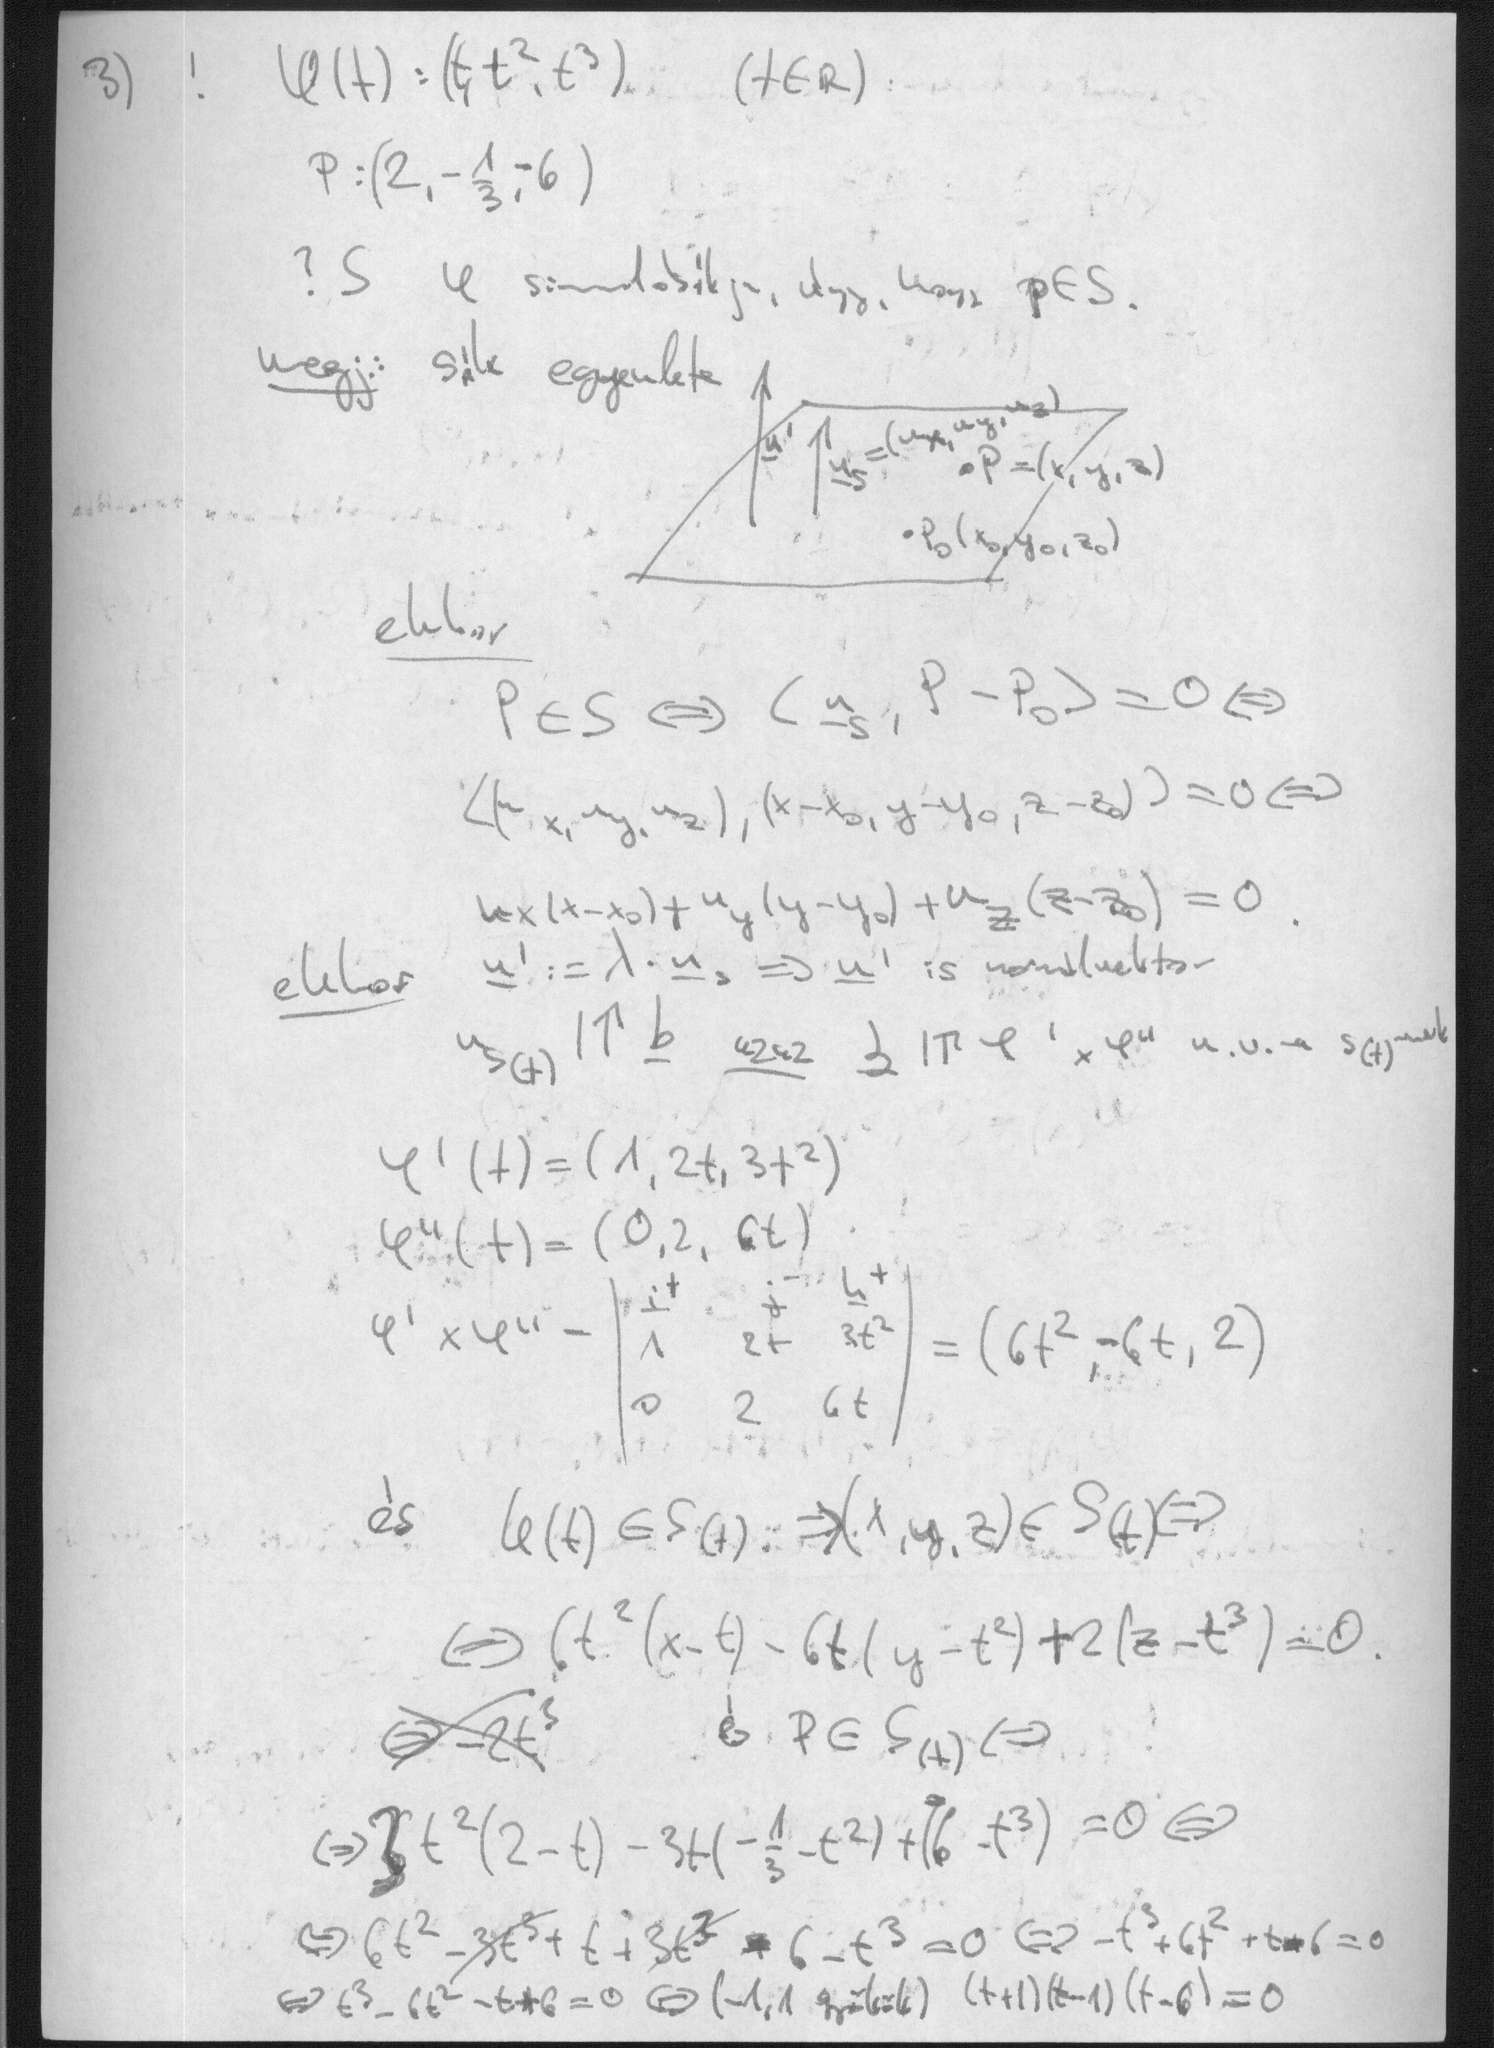 3) ! φ(t) := (t, t², t³) (t∈R).
P:(2, -1/3, -6)
? S φ simulósíkja, úgy, hogy p∈S.
megj.: sík egyenlete
n'
n_S = (n_x, n_y, n_z)
P = (x, y, z)
P₀(x₀, y₀, z₀)
ekkor
P∈S ⇔ ⟨n_S, P - P₀⟩ = 0 ⇔
⟨(n_x, n_y, n_z), (x-x₀, y-y₀, z-z₀)⟩ = 0 ⇔
n_x(x-x₀) + n_y(y-y₀) + n_z(z-z₀) = 0.
ekkor n' := λ·n_s ⇒ n' is normálvektor
n_S(t) |↑ b azaz |↑ φ' × φ'' n.v.-a S(t)-nek
φ'(t) = (1, 2t, 3t²)
φ''(t) = (0, 2, 6t)
φ' × φ'' = | i⁺ j⁻ k⁺ |
1 2t 3t²
0 2 6t
= (6t², -6t, 2)
és φ(t) ∈ S(t). ⇒ (x, y, z) ∈ S(t) ⇔
⇔ 6t²(x-t) - 6t(y-t²) + 2(z-t³) = 0.
és P∈S(t) ⇔
⇔ 3t²(2-t) - 3t(-1/3-t²) + (-6-t³) = 0 ⇔
⇔ 6t² - 3t³ + t + 3t³ - 6 - t³ = 0 ⇔ -t³ + 6t² + t - 6 = 0
⇔ t³ - 6t² - t + 6 = 0 ⇔ (-1, 1 gyökök) (t+1)(t-1)(t-6) = 0